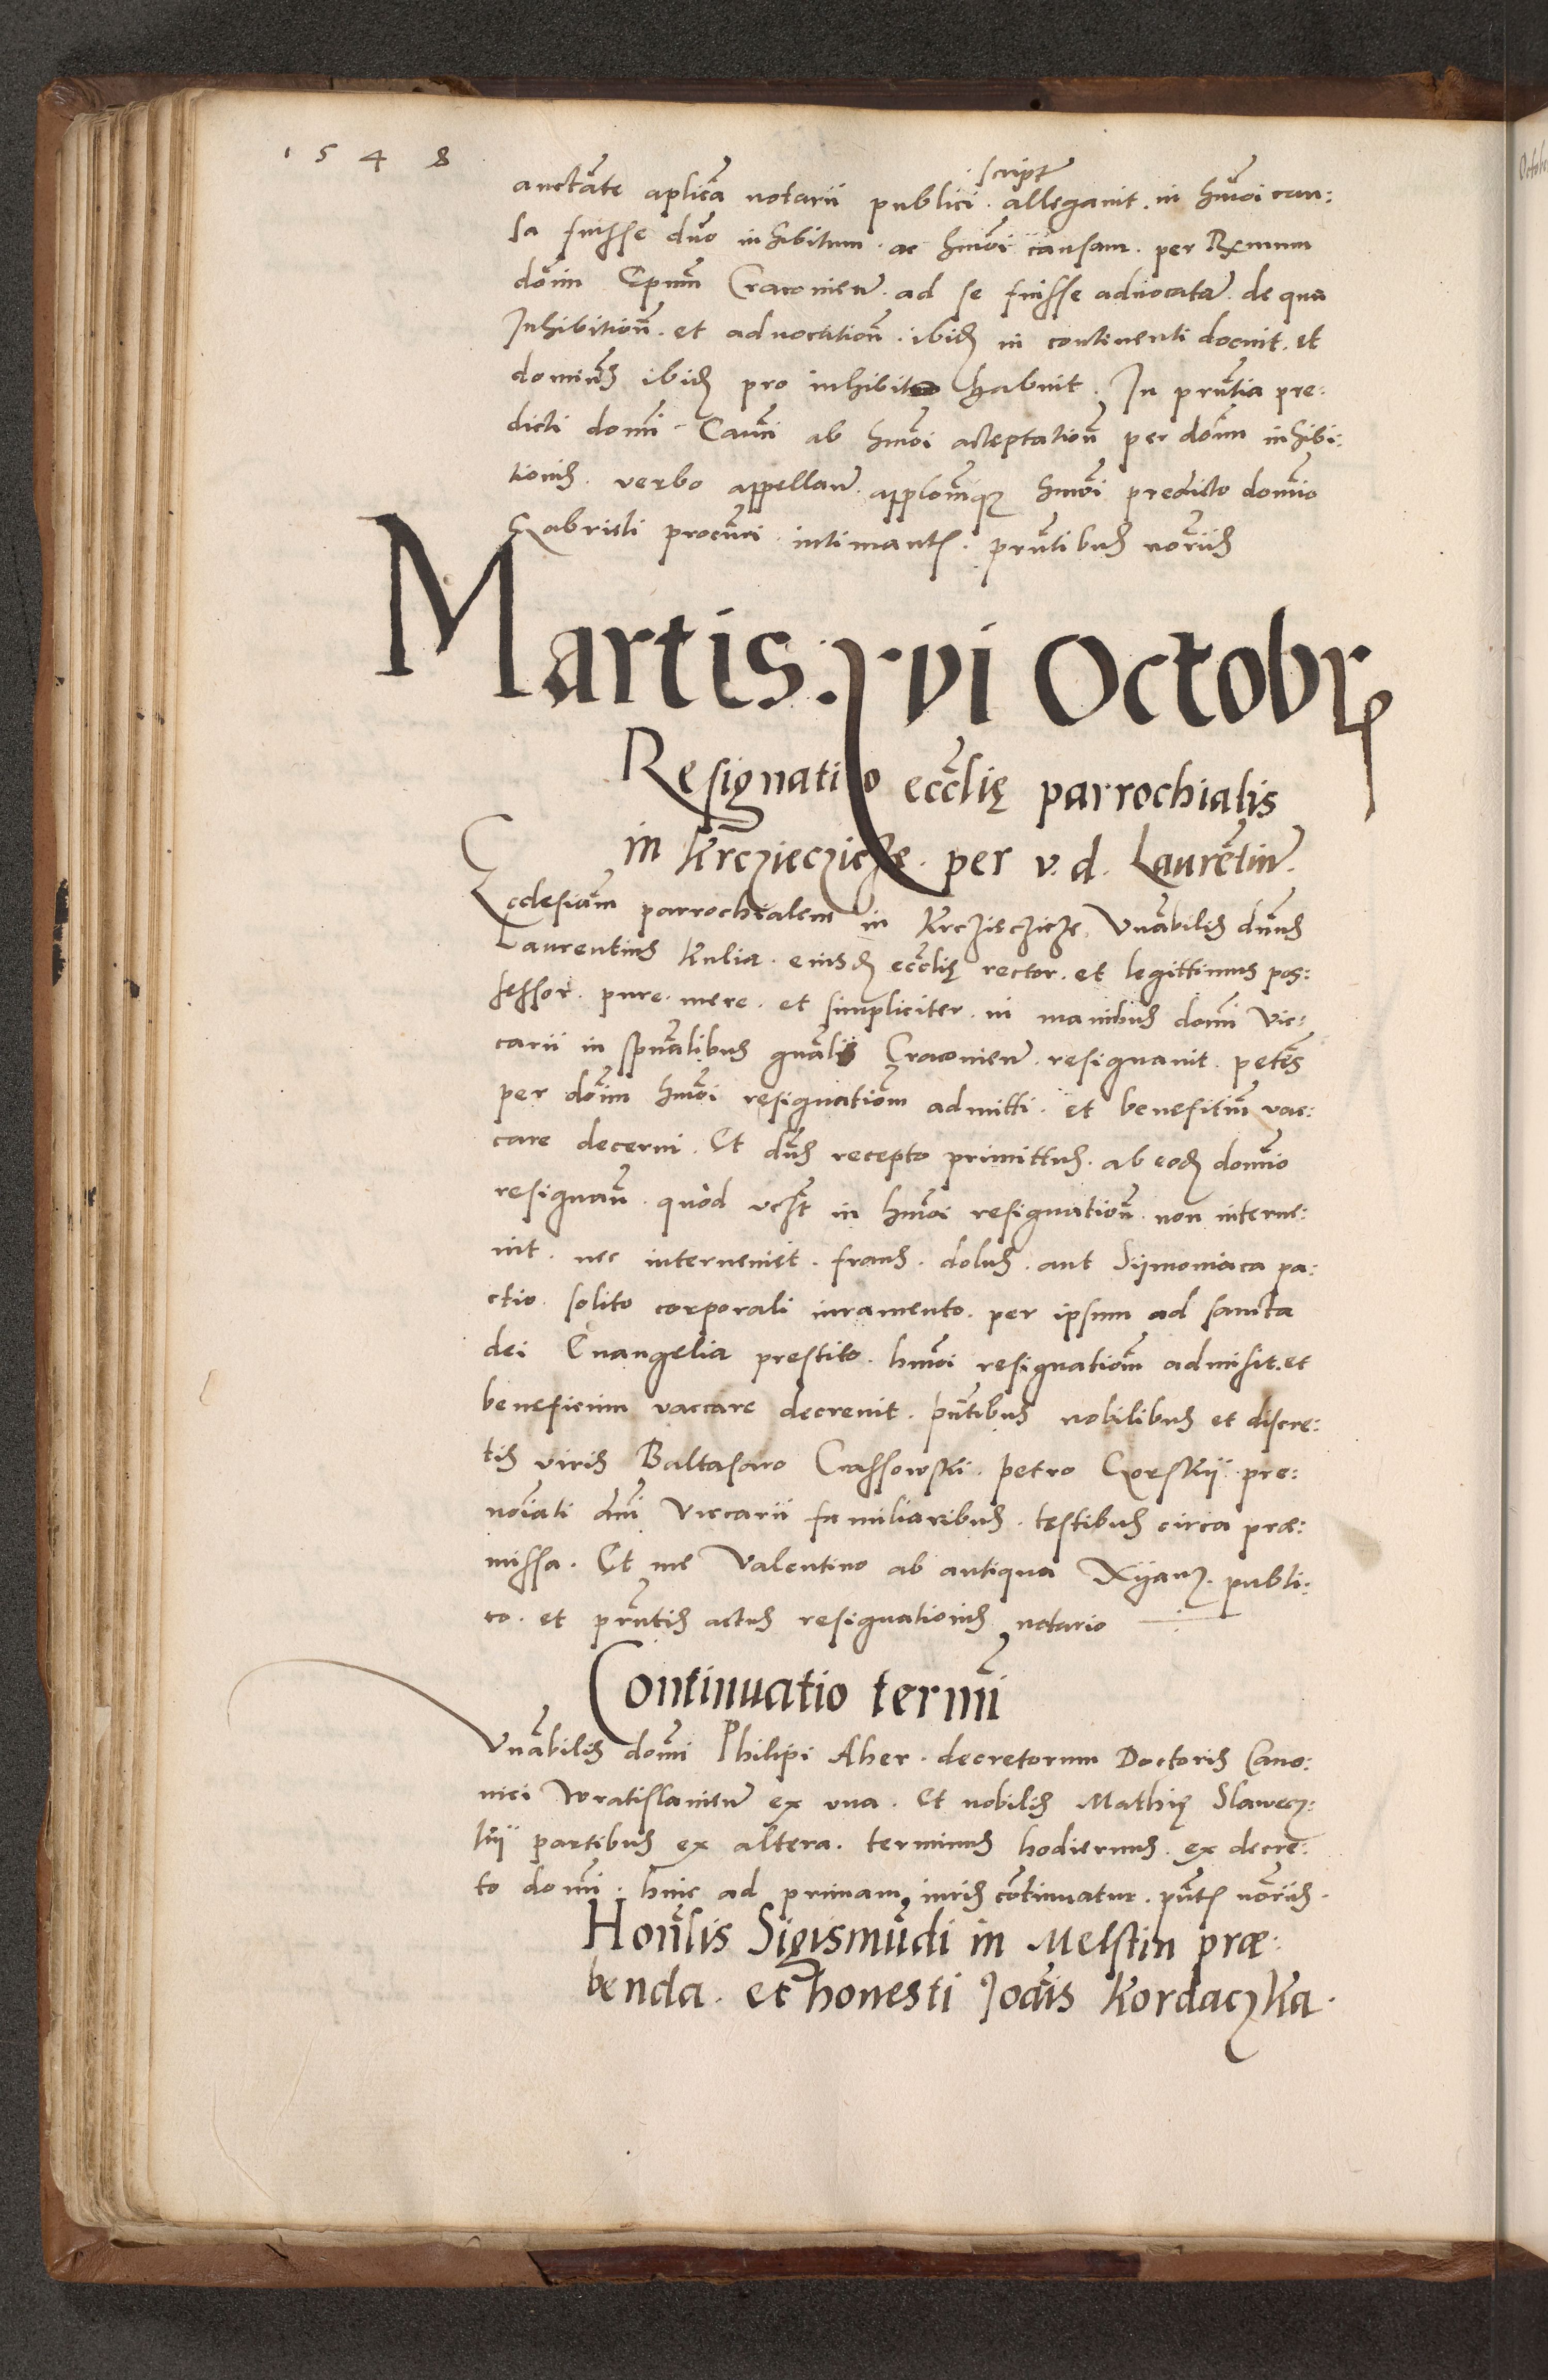 1548
script͂
auctāte aplīca notarii publici · allegauit · in hm̄oi cau:
sa fuisse dn̄o inhibitum · ac hm̄oi causam · per R͂mum
dōīm Ep̄um Cracovien͂ · ad se fuisse aduocatā · de qua
Inhibitiōn͂ · et aduocatiōn͂ · ibid͂ in continenti docuit · et
dominus ibid͂ pro inhibito habuit · In prn̄tia pre:
dicti domī Cauni ab hm̄oi acceptatiōn͂ per dōīm inhibi:
tionis · verbo appellan͂ · applōnīqꝫ hm̄oi predicto domīo
Gabrieli procūri · intimantꝭ · prn̄tibus nōrīis
Martis · xvi Octobrꝭ
Resignatio ecc̄lię parrochialis
in Krczięczicze · per v. d. Laurētiū ·
Ecclesiam parrochialem in Krcziecziche Vn̄abilis dn̄us
Laurentius Kulia · eiusd͂ ecc̄lię rector · et legittimus pos:
sessor · pure · mere · et simpliciter · in manibus domī Vic:
carii in spūalibus gn̄alis Cracovien͂ · resignauit · petēs
per dōīm hm̄oi resignatiōm admitti · et benefitiū vac:
care decerni · Et dn̄s recepto primittus · ab eod͂ domīo
resignan͂ · quod vc̄st in hm̄oi resignatiōn͂ · non interue:
nit · nec interueniet · fraus · dolus · aut Sÿmoniaca pa:
ctio · solito corporali iuramento · per ipsum ad sancta
dei Euangelia prestito · hm̄oi resignatiōm admisit · et
beneficium vaccare decreuit · pn̄tibus nobilibus et discre:
tis viris Baltasaro Crassowski · petro Gorskÿ pre:
noīati dnī Viccarii familiaribus · testibus circa præ:
missa · Et me Valentino ab antiqua Rÿanꝫ · publi:
co · et prn̄tis actus resignationis notario
Continuatio termī
Vn̄abilis domī Philipi Aher · decretorum Doctoris Cano:
nici Wratislauien͂ ex vna · Et nobilis Mathię Slawecz:
kÿ partibus ex altera · terminus hodiernus · ex decre:
to domī · hinc ad primam iuris continuatur · pn̄tꝭ nōrīis ·
Honn̄lis Sigismūdi in Melstin præ:
benda · et honesti Joānis Kordaczka ·